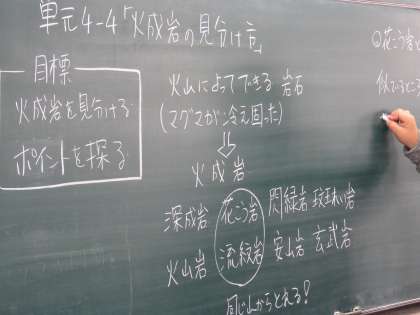 単元4-4「火成岩の見分け方」
目標
火成岩を見分ける
ポイントを探る
火山によってできる岩石
(マグマが冷え固った)
⇩
火成岩
深成岩 花こう岩 閃緑岩 斑れい岩
火山岩 流紋岩 安山岩 玄武岩
同じ山からとれる!
花こう岩
似ているところ